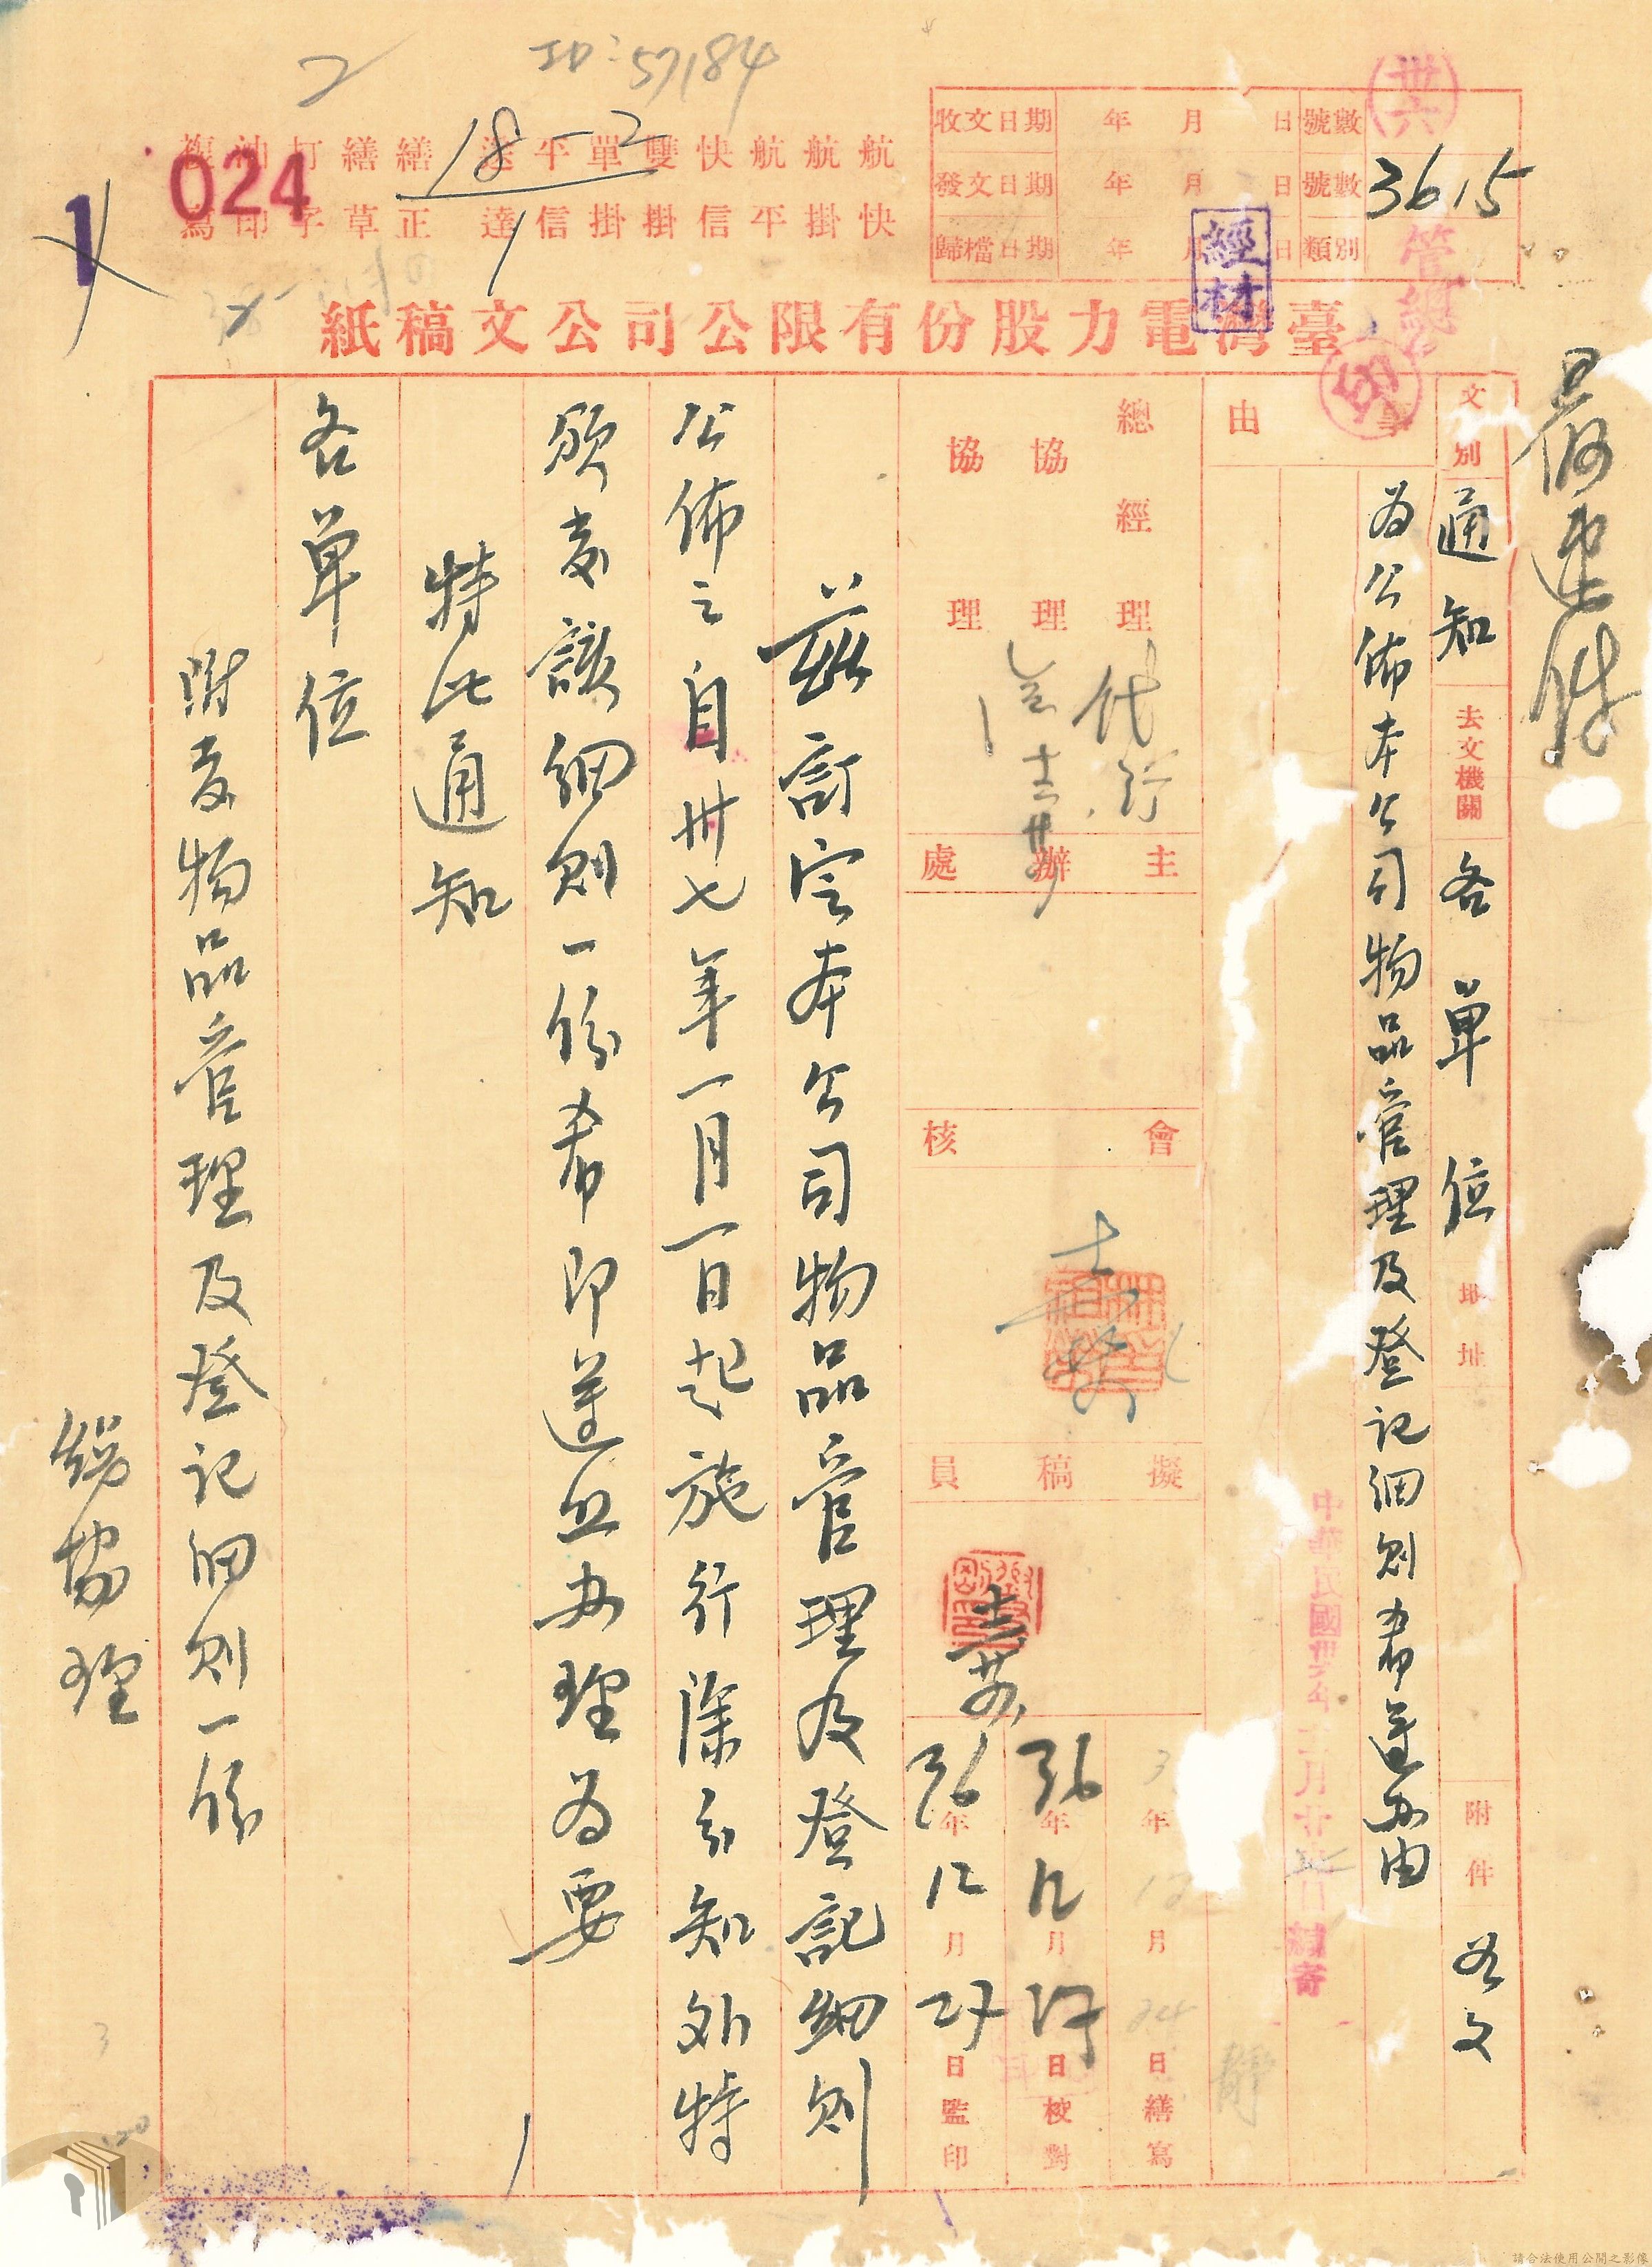 ID:57184
2
18-2
1
024
1
航快
航掛
航平
快信
雙掛
單掛
平信
送達
繕正
繕草
打字
油印
複寫
收文日期 年 月 日 號數
發文日期 年 月 日 號數 3615
歸檔日期 年 月 日 類別
經材
臺灣電力股份有限公司公文稿紙
最速件
文別 通知 去文機關 各單位 地址 附件 如文
事由 為公佈本公司物品管理及登記細則希遵辦由
總經理 代行
協理
協理
主辦處
會核
擬稿員
年 12 月 24 日繕寫
36年12月27日校對
36年12月27日監印
茲訂定本公司物品管理及登記細則
公佈之自卅七年一月一日起施行除分知外特
頒發該細則一份希即遵照辦理為要
特此通知
各單位
附發物品管理及登記細則一份
總協理
請合法使用公開之影像